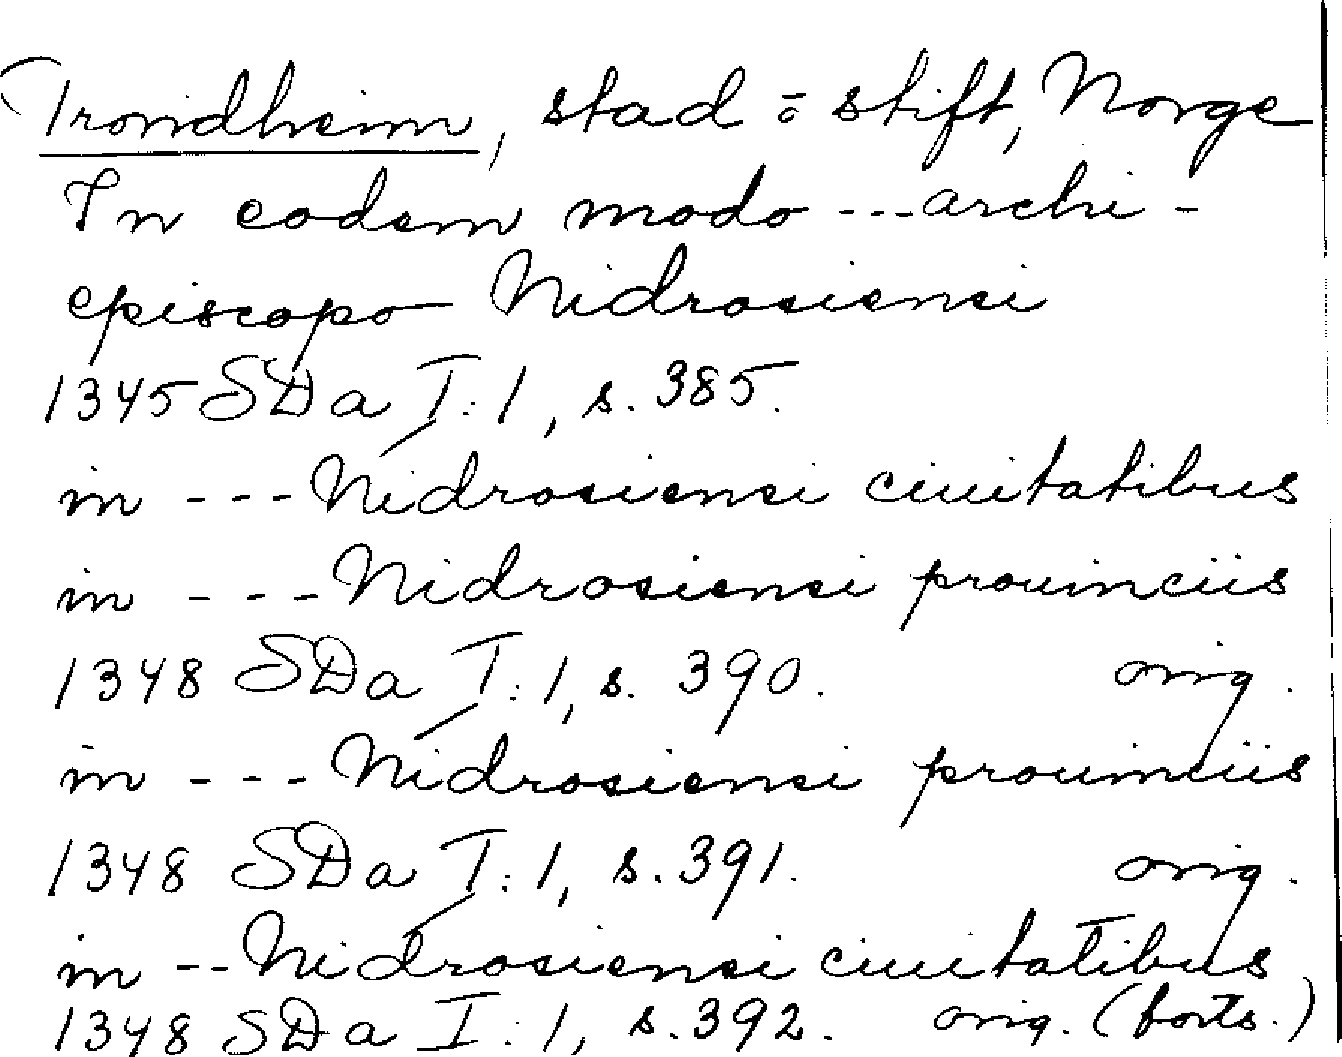 Trondheim, stad o stift, Norge
In eodem modo --- archi-
episcopo Nidrosiensi
1345 SDa I:1, s. 385.
in --- Nidrosiensi ciuitatibus
in --- Nidrosiensi prouinciis
1348 SDa I:1, s. 390. orig.
in --- Nidrosiensi prouinciis
1348 SDa I:1, s. 391. orig.
in -- Nidrosiensi ciuitatibus
1348 SDa I:1, s. 392. orig. (forts.)